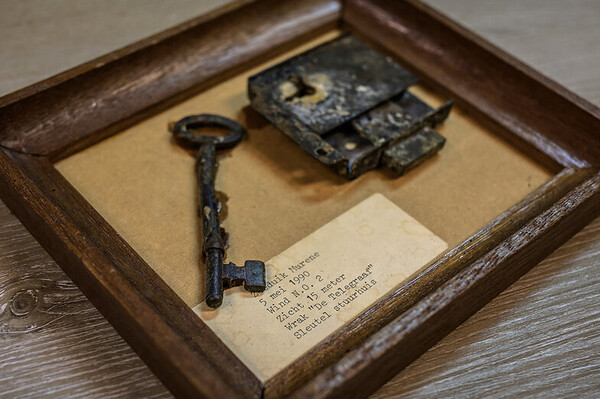 Murene
5 mei 1990
Wind N.O. 2
Zicht 15 meter
Wrak "De Telegraaf"
Sleutel stuurhuis